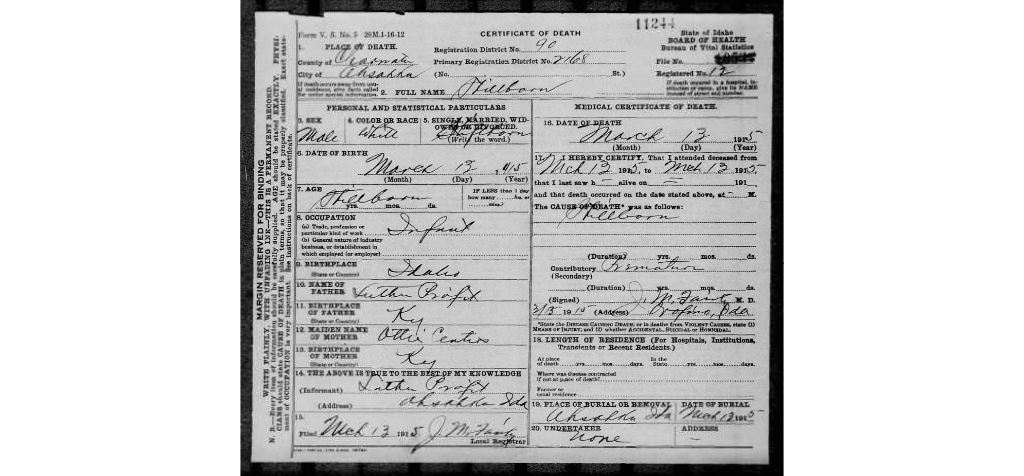 11244
Form V. S. No. 5 20M.1-16-12
CERTIFICATE OF DEATH
State of Idaho
BOARD OF HEALTH
Bureau of Vital Statistics
1. PLACE OF DEATH.
Registration District No. 90
County of Clearwater
Primary Registration District No. 2168
File No.
City of Ahsahka
(No. St.)
Registered No. 12
If death occurs away from usual residence, give facts called for under special information.
2. FULL NAME Stillborn
If death occurred in a hospital, institution or camp, give its NAME instead of street and number.
PERSONAL AND STATISTICAL PARTICULARS
3. SEX
Male
4. COLOR OR RACE
White
5. SINGLE, MARRIED, WIDOWED OR DIVORCED.
(Write the word.)
6. DATE OF BIRTH
March 13 1915
(Month) (Day) (Year)
7. AGE
Stillborn
yrs. mos. ds.
IF LESS than 1 day
how many hs. or
min?
8. OCCUPATION
(a) Trade, profession or particular kind of work
(b) General nature of industry business, or establishment in which employed (or employer)
Infant
9. BIRTHPLACE
(State or Country)
Idaho
10. NAME OF FATHER
Luther Profit
11. BIRTHPLACE OF FATHER
(State or Country)
Ky
12. MAIDEN NAME OF MOTHER
Ottie
13. BIRTHPLACE OF MOTHER
(State or Country)
Ky
14. THE ABOVE IS TRUE TO THE BEST OF MY KNOWLEDGE
(Informant) Luther Profit
(Address) Ahsahka Ida
15.
Filed Mch 13 1915 J. M. Fairly
Local Registrar
MEDICAL CERTIFICATE OF DEATH.
16. DATE OF DEATH
March 13 1915
(Month) (Day) (Year)
17. I HEREBY CERTIFY, That I attended deceased from
Mch 13 1915, to Mch 13 1915.
that I last saw h – alive on – 191
and that death occurred on the date stated above, at – M.
The CAUSE OF DEATH* was as follows:
Stillborn
(Duration) yrs. mos. ds.
Contributory Premature
(Secondary)
(Duration) yrs. mos. ds.
(Signed) J. M. Fairly M. D.
3/13 1915 (Address) Orofino, Ida
*State the DISEASE CAUSING DEATH; or in deaths from VIOLENT CAUSES, state (1) MEANS OF INJURY; and (2) whether ACCIDENTAL, SUICIDAL or HOMICIDAL.
18. LENGTH OF RESIDENCE (For Hospitals, Institutions, Transients or Recent Residents.)
At place of death yrs. mos. days. In the State yrs. mos. days.
Where was disease contracted
if not at place of death?
Former or
usual residence
19. PLACE OF BURIAL OR REMOVAL
Ahsahka Ida
DATE OF BURIAL
Mch 13 1915
20. UNDERTAKER
None
ADDRESS
–
MARGIN RESERVED FOR BINDING
WRITE PLAINLY, WITH UNFADING INK—THIS IS A PERMANENT RECORD.
N. B.—Every item of information should be carefully supplied. AGE should be stated EXACTLY. PHYSICIANS should state CAUSE OF DEATH in plain terms, so that it may be properly classified. Exact statement of OCCUPATION is very important. See instructions on back of certificate.